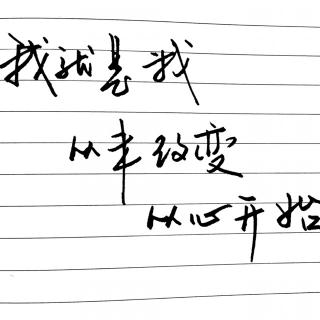 我就是我
从改变
从心开始